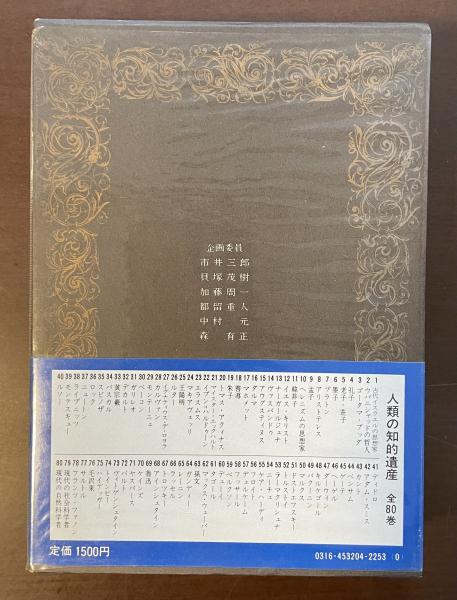 企画委員
市井三郎
貝塚茂樹
加藤周一
都留重人
中村元
森有正
人類の知的遺産 全80巻
1 古代イスラエルの思想家
2 ウパニシャッドの哲人
3 ゴータマ・ブッダ
4 孔子
5 老子・荘子
6 墨子
7 プラトン
8 アリストテレス
9 孟子
10 ヘレニズムの思想家
11 韓非子
12 イエス・キリスト
13 ナーガールジュナ
14 ヴァスバンドゥ
15 アウグスティヌス
16 ダルマ
17 マホメット
18 善導
19 朱子
20 トマス・アクィナス
21 マイスター・エックハルト
22 イブン=ハルドゥーン
23 エラスムス
24 マキアヴェリ
25 王陽明
26 ルター
27 イグナティウス・デ・ロヨラ
28 カルヴァン
29 モンテーニュ
30 ベーコン
31 ガリレオ
32 デカルト
33 黄宗羲
34 パスカル
35 スピノザ
36 ロック
37 ニュートン
38 ライプニッツ
39 モンテスキュー
40 ルソー
41 ディドロ
42 アダム・スミス
43 カント
44 ベンサム
45 ゲーテ
46 ヘーゲル
47
48 キルケゴール
49 バクーニン
50 マルクス
51 ドストエフスキー
52 トルストイ
53 ラーマクリシュナ
54 ニーチェ
55 ケア・ハーディ
56 フロイト
57 デュルケーム
58
59 ベルクソン
60 デューイ
61 タゴール
62 マックス・ウェーバー
63 孫文
64 ガンディー
65 レーニン
66 ラッセル
67 トロツキー
68 アインシュタイン
69 魯迅
70
71 ヤスパース
72 バルト
73 ヴィトゲンシュタイン
74 トインビー
75 ハイデッガー
76 毛沢東
77 サルトル
78 フランツ・ファノン
79 現代の社会科学者
80 現代の自然科学者
定価 1500円
0316-453204-2253 (0)